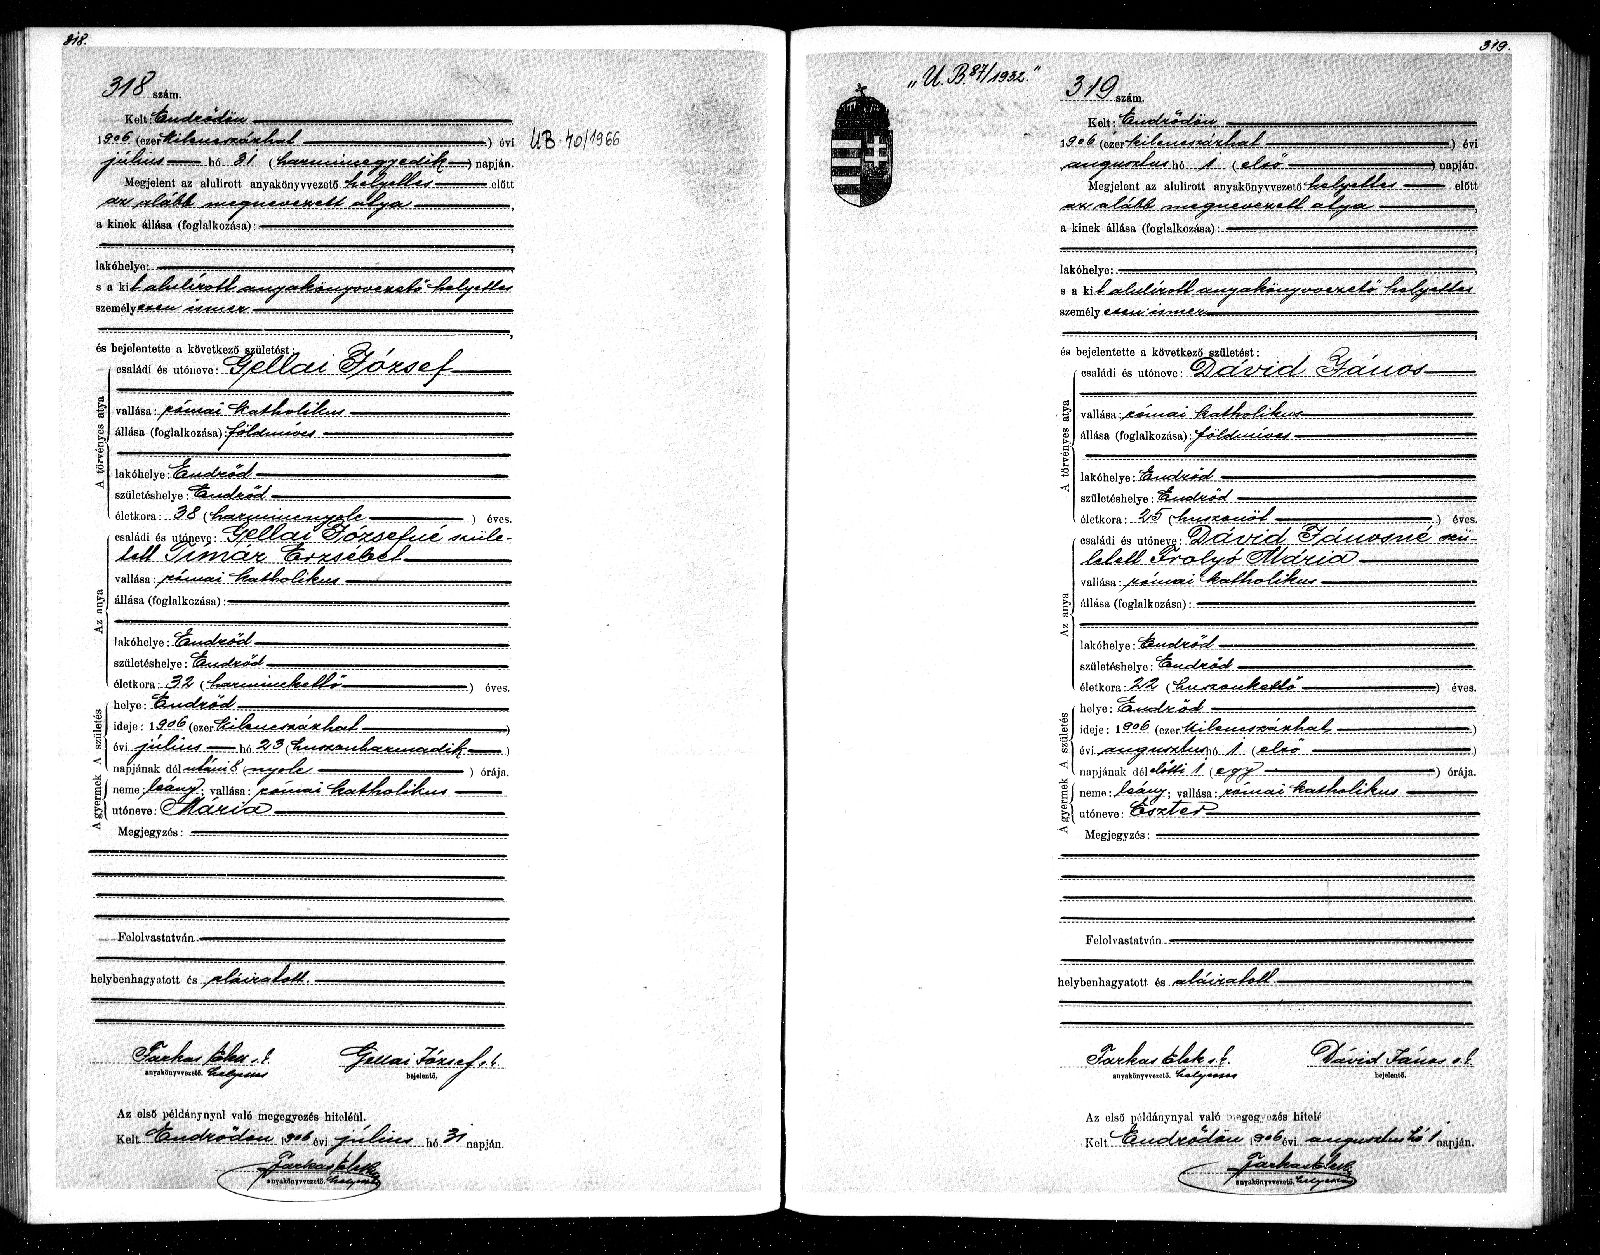 318.
318 szám.
Kelt: Endrődön
1906 (ezer kilenczszázhat) évi
július hó 31 (harminczegyedik) napján.
UB. 70/1966
Megjelent az alulirott anyakönyvvezető helyettes előtt
az alább megnevezett atya,
a kinek állása (foglalkozása):
lakóhelye:
s a kit alulirott anyakönyvvezető helyettes
személyesen ismer
és bejelentette a következő születést:
A törvényes atya
családi és utóneve: Gellai József
vallása: római katholikus
állása (foglalkozása): földmíves
lakóhelye: Endrőd
születéshelye: Endrőd
életkora: 38 (harmincznyolc) éves.
Az anya
családi és utóneve: Gellai Józsefné szüle-
tett Tímár Erzsébet
vallása: római katholikus
állása (foglalkozása):
lakóhelye: Endrőd
születéshelye: Endrőd
életkora: 32 (harminczkettő) éves.
A születés
helye: Endrőd
ideje: 1906 (ezer kilenczszázhat)
évi július hó 23 (huszonharmadik)
napjának dél utáni 8 (nyolc) órája.
A gyermek
neme: leány; vallása: római katholikus
utóneve: Mária
Megjegyzés:
Felolvastatván
helybenhagyatott és aláiratott.
Farkas Elek s.k. Gellai József s.k.
anyakönyvvezető. helyettes bejelentő.
Az első példánynyal való megegyezés hiteléül.
Kelt Endrődön 1906 évi július hó 31 napján.
Farkas Elek
anyakönyvvezető. helyettes
319.
„U. B. 87/1932."
319 szám.
Kelt: Endrődön
1906 (ezer kilenczszázhat) évi
augusztus hó 1 (első) napján.
Megjelent az alulirott anyakönyvvezető helyettes előtt
az alább megnevezett atya,
a kinek állása (foglalkozása):
lakóhelye:
s a kit alulirott anyakönyvvezető helyettes
személyesen ismer
és bejelentette a következő születést:
A törvényes atya
családi és utóneve: Dávid János
vallása: római katholikus
állása (foglalkozása): földmíves
lakóhelye: Endrőd
születéshelye: Endrőd
életkora: 25 (huszonöt) éves.
Az anya
családi és utóneve: Dávid Jánosné szü-
letett Frolyó Mária
vallása: római katholikus
állása (foglalkozása):
lakóhelye: Endrőd
születéshelye: Endrőd
életkora: 22 (huszonkettő) éves.
A születés
helye: Endrőd
ideje: 1906 (ezer kilenczszázhat)
évi augusztus hó 1 (első)
napjának dél előtti 1 (egy) órája.
A gyermek
neme: leány; vallása: római katholikus
utóneve: Eszter
Megjegyzés:
Felolvastatván
helybenhagyatott és aláiratott
Farkas Elek s.k. Dávid János s.k.
anyakönyvvezető. helyettes bejelentő.
Az első példánynyal való megegyezés hitelé
Kelt Endrődön 1906 évi augusztus hó 1 napján.
Farkas Elek
anyakönyvvezető. helyettes